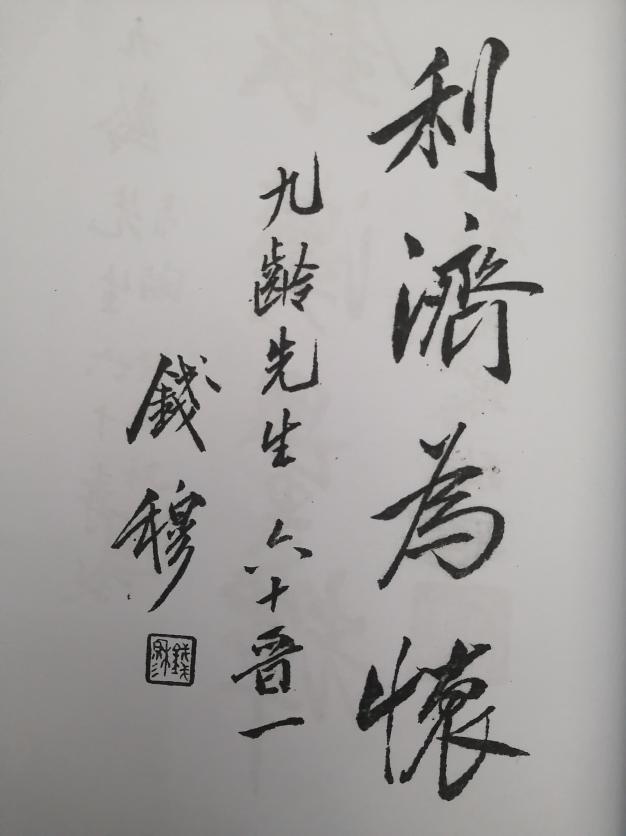 利濟為懷
九齡先生 六十晋一
錢穆
錢穆